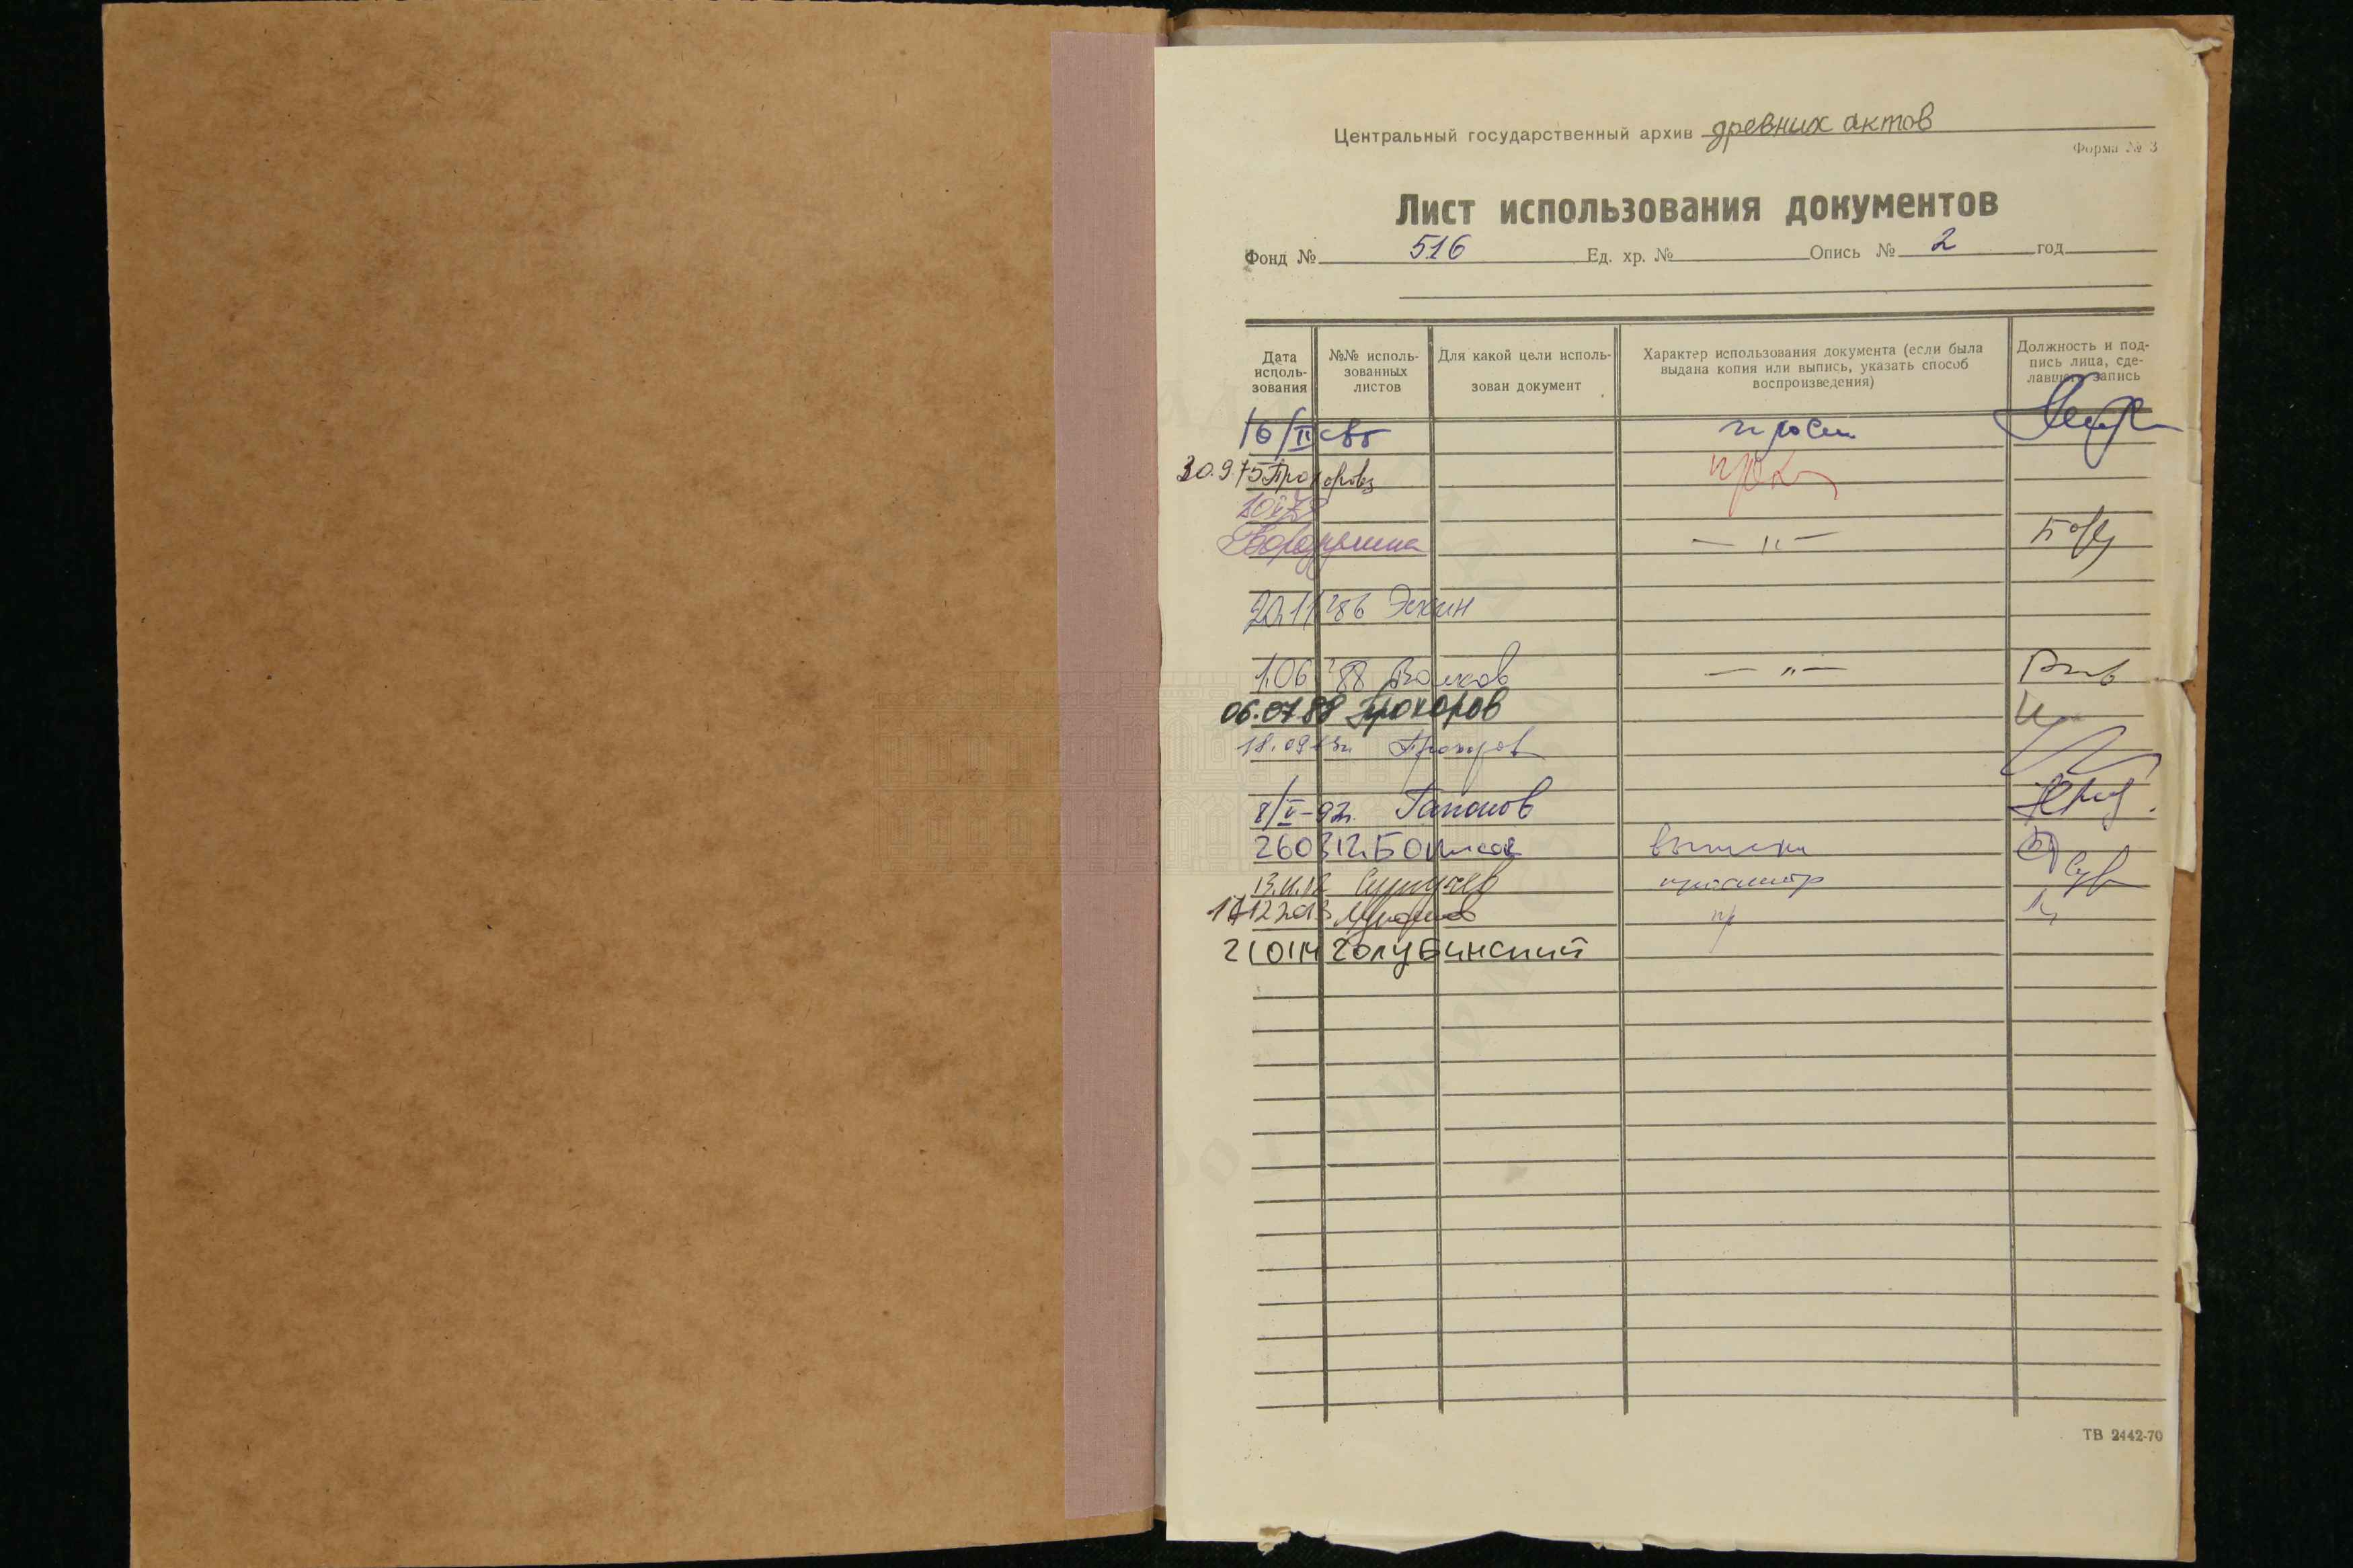 Центральный государственный архив древних актов
Форма № 3
Лист использования документов
Фонд № 516 Ед. хр. № Опись № 2 год
Дата исполь-зования
№№ исполь-зованных листов
Для какой цели исполь-зован документ
Характер использования документа (если была выдана копия или выпись, указать способ воспроизведения)
Должность и под-пись лица, сде-лавшего запись
16/II
30.9.75
— " —
20.11 86 Эскин
1.06 88 Волков — " —
06.07.88 Прохоров
18.09 Прохоров
8/V-92г. Гапонов
просмотр
17 12 2013
210114 Голубинский
ТВ 2442-70